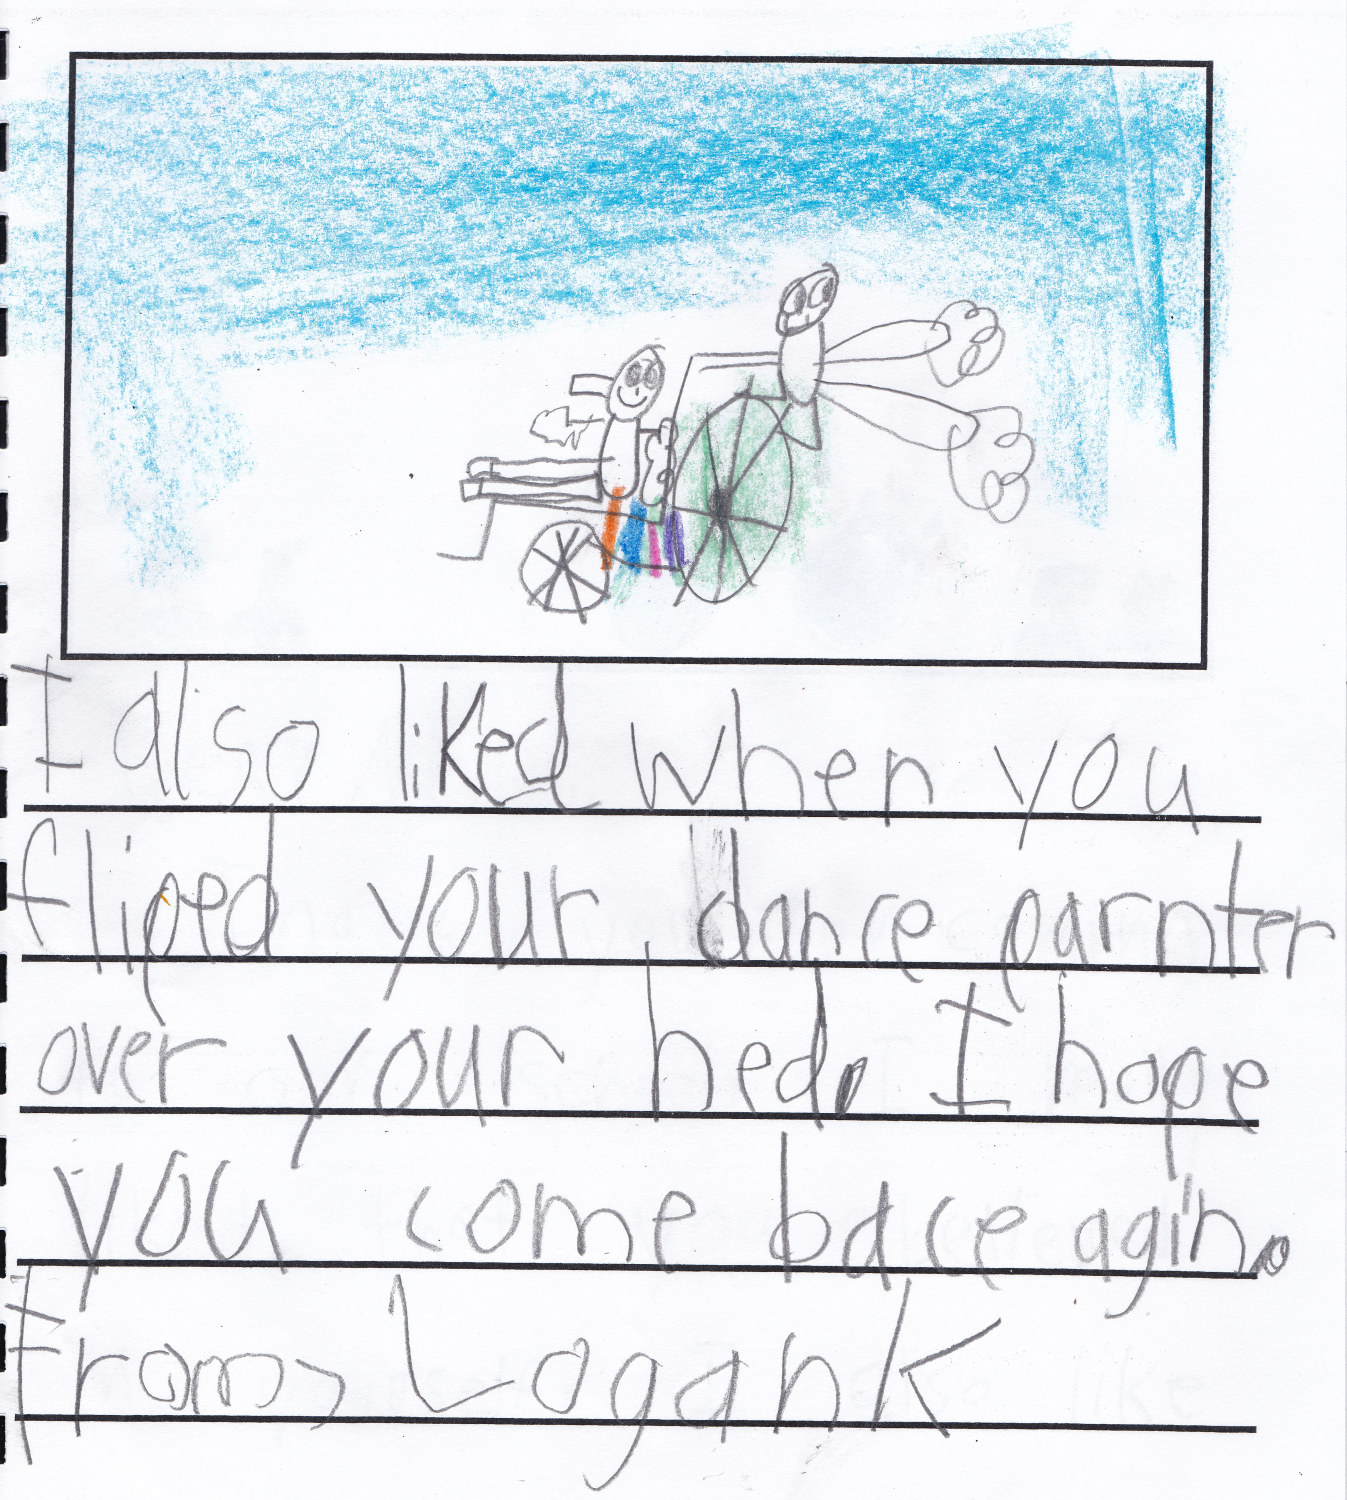 I also liked when you
fliped your dance parnter
over your hed. I hope
you come bace agin.
From, Logan K